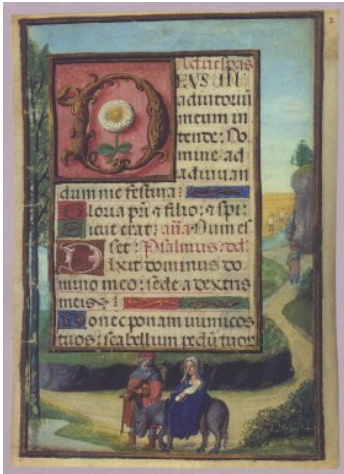 2
Ad uesperas
EUS in
adiutoriū
meum in
tende: Do
mine ad
adiuuan
dum me festina:
Gloria pri & filio: & spi
icut erat: aña Dum es
set: Psalmus dd.
Dixit dominus do
mino meo: sede a dextris
meis:
Donec ponam inimicos
tuos: scabellum pedū tuor